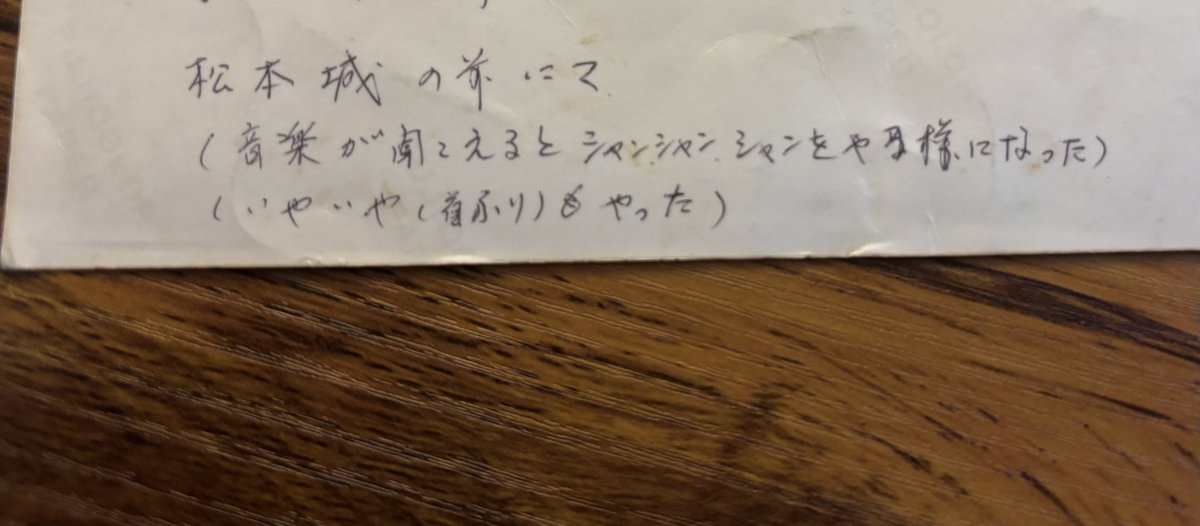 松本城の前にて
(音楽が聞こえるとシャンシャンシャンをやる様になった)
(いやいや(首ふり)もやった)